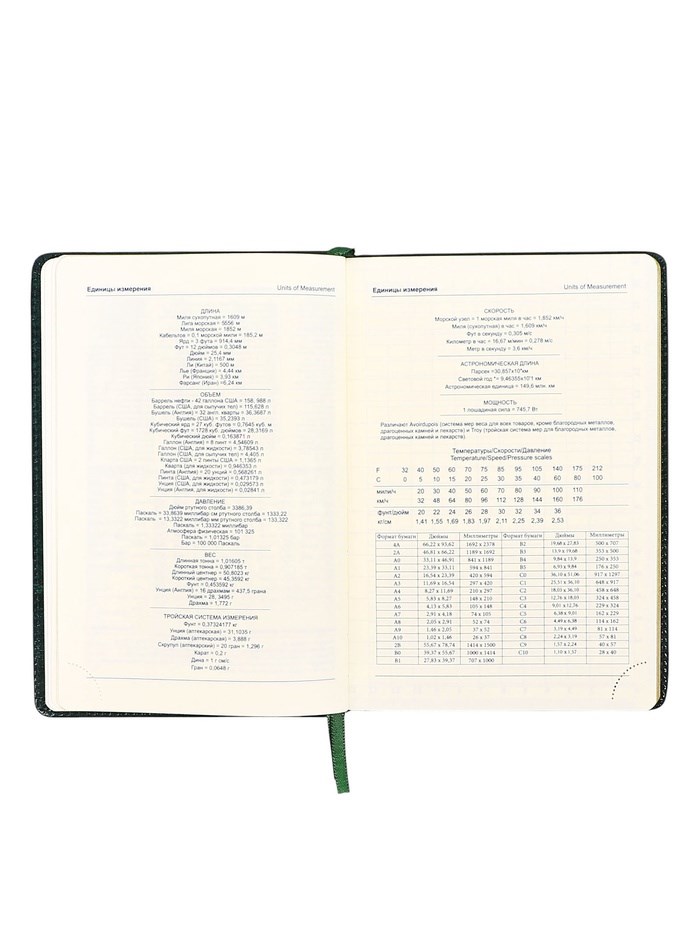 Единицы измерения Units of Measurement
ДЛИНА
Миля сухопутная = 1609 м
Лига морская = 5556 м
Миля морская = 1852 м
Кабельтов = 0,1 морской мили = 185,2 м
Ярд = 3 фута = 914,4 мм
Фут = 12 дюймов = 0,3048 м
Дюйм = 25,4 мм
Линия = 2,1167 мм
Ли (Китай) = 500 м
Лье (Франция) = 4,44 км
Ри (Япония) = 3,93 км
Фарсанг (Иран) =6,24 км
ОБЪЕМ
Баррель нефти - 42 галлона США = 158, 988 л
Баррель (США, для сыпучих тел) = 115,628 л
Бушель (Англия) = 32 англ. кварты = 36,3687 л
Бушель (США) = 35,2393 л
Кубический ярд = 27 куб. футов = 0,7645 куб. м
Кубический фут = 1728 куб. дюймов = 28,3169 л
Кубический дюйм = 0,163871 л
Галлон (Англия) = 8 пинт = 4,54609 л
Галлон (США, для жидкости) = 3,78543 л
Галлон (США, для сыпучих тел) = 4,405 л
Кварта США = 2 пинты США = 1,1365 л
Кварта (для жидкости) = 0,946353 л
Пинта (Англия) = 20 унций = 0,568261 л
Пинта (США, для жидкости) = 0,473179 л
Унция (США, для жидкости) = 0,029573 л
Унция (Англия) = 0,02841 л
ДАВЛЕНИЕ
Дюйм ртутного столба = 3386,39
Паскаль = 33,8639 миллибар см ртутного столба = 1333,22
Паскаль = 13,3322 миллибар мм ртутного столба = 133,322
Паскаль = 1,33322 миллибар
Атмосфера физическая = 101,325
Паскаль = 1,01325 бар
Бар = 100 000 Паскаль
ВЕС
Длинная тонна = 1,01605 т
Короткая тонна = 0,907185 т
Длинный центнер = 50,8023 кг
Короткий центнер = 45,3592 кг
Фунт = 0,453592 кг
Унция (Англия) = 16 драхмам = 437,5 грана
Унция = 28, 3495 г
Драхма = 1,772 г
ТРОЙСКАЯ СИСТЕМА ИЗМЕРЕНИЯ
Фунт = 0,37324177 кг
Унция (аптекарская) = 31,1035 г
Драхма (аптекарская) = 3,888 г
Скрупул (аптекарский) = 20 гран = 1,296 г
Карат = 0,2 г
Дина = 1 г см/с
Гран = 0,0648 г
Единицы измерения Units of Measurement
СКОРОСТЬ
Морской узел = 1 морская миля в час = 1,852 км/ч
Миля (сухопутная) в час = 1,609 км/ч
Фут в секунду = 0,305 м/с
Километр в час = 16,67 м/мин = 0,278 м/с
Метр в секунду = 3,6 км/ч
АСТРОНОМИЧЕСКАЯ ДЛИНА
Парсек =30,857x10¹²км
Световой год = 9,46355x10¹² км
Астрономическая единица = 149,6 млн. км
МОЩНОСТЬ
1 лошадиная сила = 745,7 Вт
Различают Avoirdupois (система мер веса для всех товаров, кроме благородных металлов,
драгоценных камней и лекарств) и Troy (тройская система мер для благородных металлов,
драгоценных камней и лекарств).
Температуры/Скорости/Давление
Temperature/Speed/Pressure scales
F 32 40 50 60 70 75 85 95 105 140 175 212
C 0 5 10 15 20 25 30 35 40 60 80 100
мили/ч 20 30 40 50 60 70 80 90 100 110
км/ч 32 48 64 80 96 112 128 144 160 176
фунт/дюйм 20 22 24 26 28 30 32 34 36
кг/см 1,41 1,55 1,69 1,83 1,97 2,11 2,25 2,39 2,53
Формат бумаги Дюймы Миллиметры Формат бумаги Дюймы Миллиметры
4A 66,22 x 93,62 1692 x 2378 B2 19,68 x 27,83 500 x 707
2A 46,81 x 66,22 1189 x 1692 B3 13,9 x 19,68 353 x 500
A0 33,11 x 46,81 841 x 1189 B4 9,84 x 13,9 250 x 353
A1 23,39 x 33,11 594 x 841 B5 6,93 x 9,84 176 x 250
A2 16,54 x 23,39 420 x 594 C0 36,10 x 51,06 917 x 1297
A3 11,69 x 16,54 297 x 420 C1 25,51 x 36,10 648 x 917
A4 8,27 x 11,69 210 x 297 C2 18,03 x 36,10 458 x 648
A5 5,83 x 8,27 148 x 210 C3 12,76 x 18,03 324 x 458
A6 4,13 x 5,83 105 x 148 C4 9,01 x 12,76 229 x 324
A7 2,91 x 4,18 74 x 105 C5 6,38 x 9,01 162 x 229
A8 2,05 x 2,91 52 x 74 C6 4,49 x 6,38 114 x 162
A9 1,46 x 2,05 37 x 52 C7 3,19 x 4,49 81 x 114
A10 1,02 x 1,46 26 x 37 C8 2,24 x 3,19 57 x 81
2B 55,67 x 78,74 1414 x 1500 C9 1,57 x 2,24 40 x 57
B0 39,37 x 55,67 1000 x 1414 C10 1,10 x 1,57 28 x 40
B1 27,83 x 39,37 707 x 1000